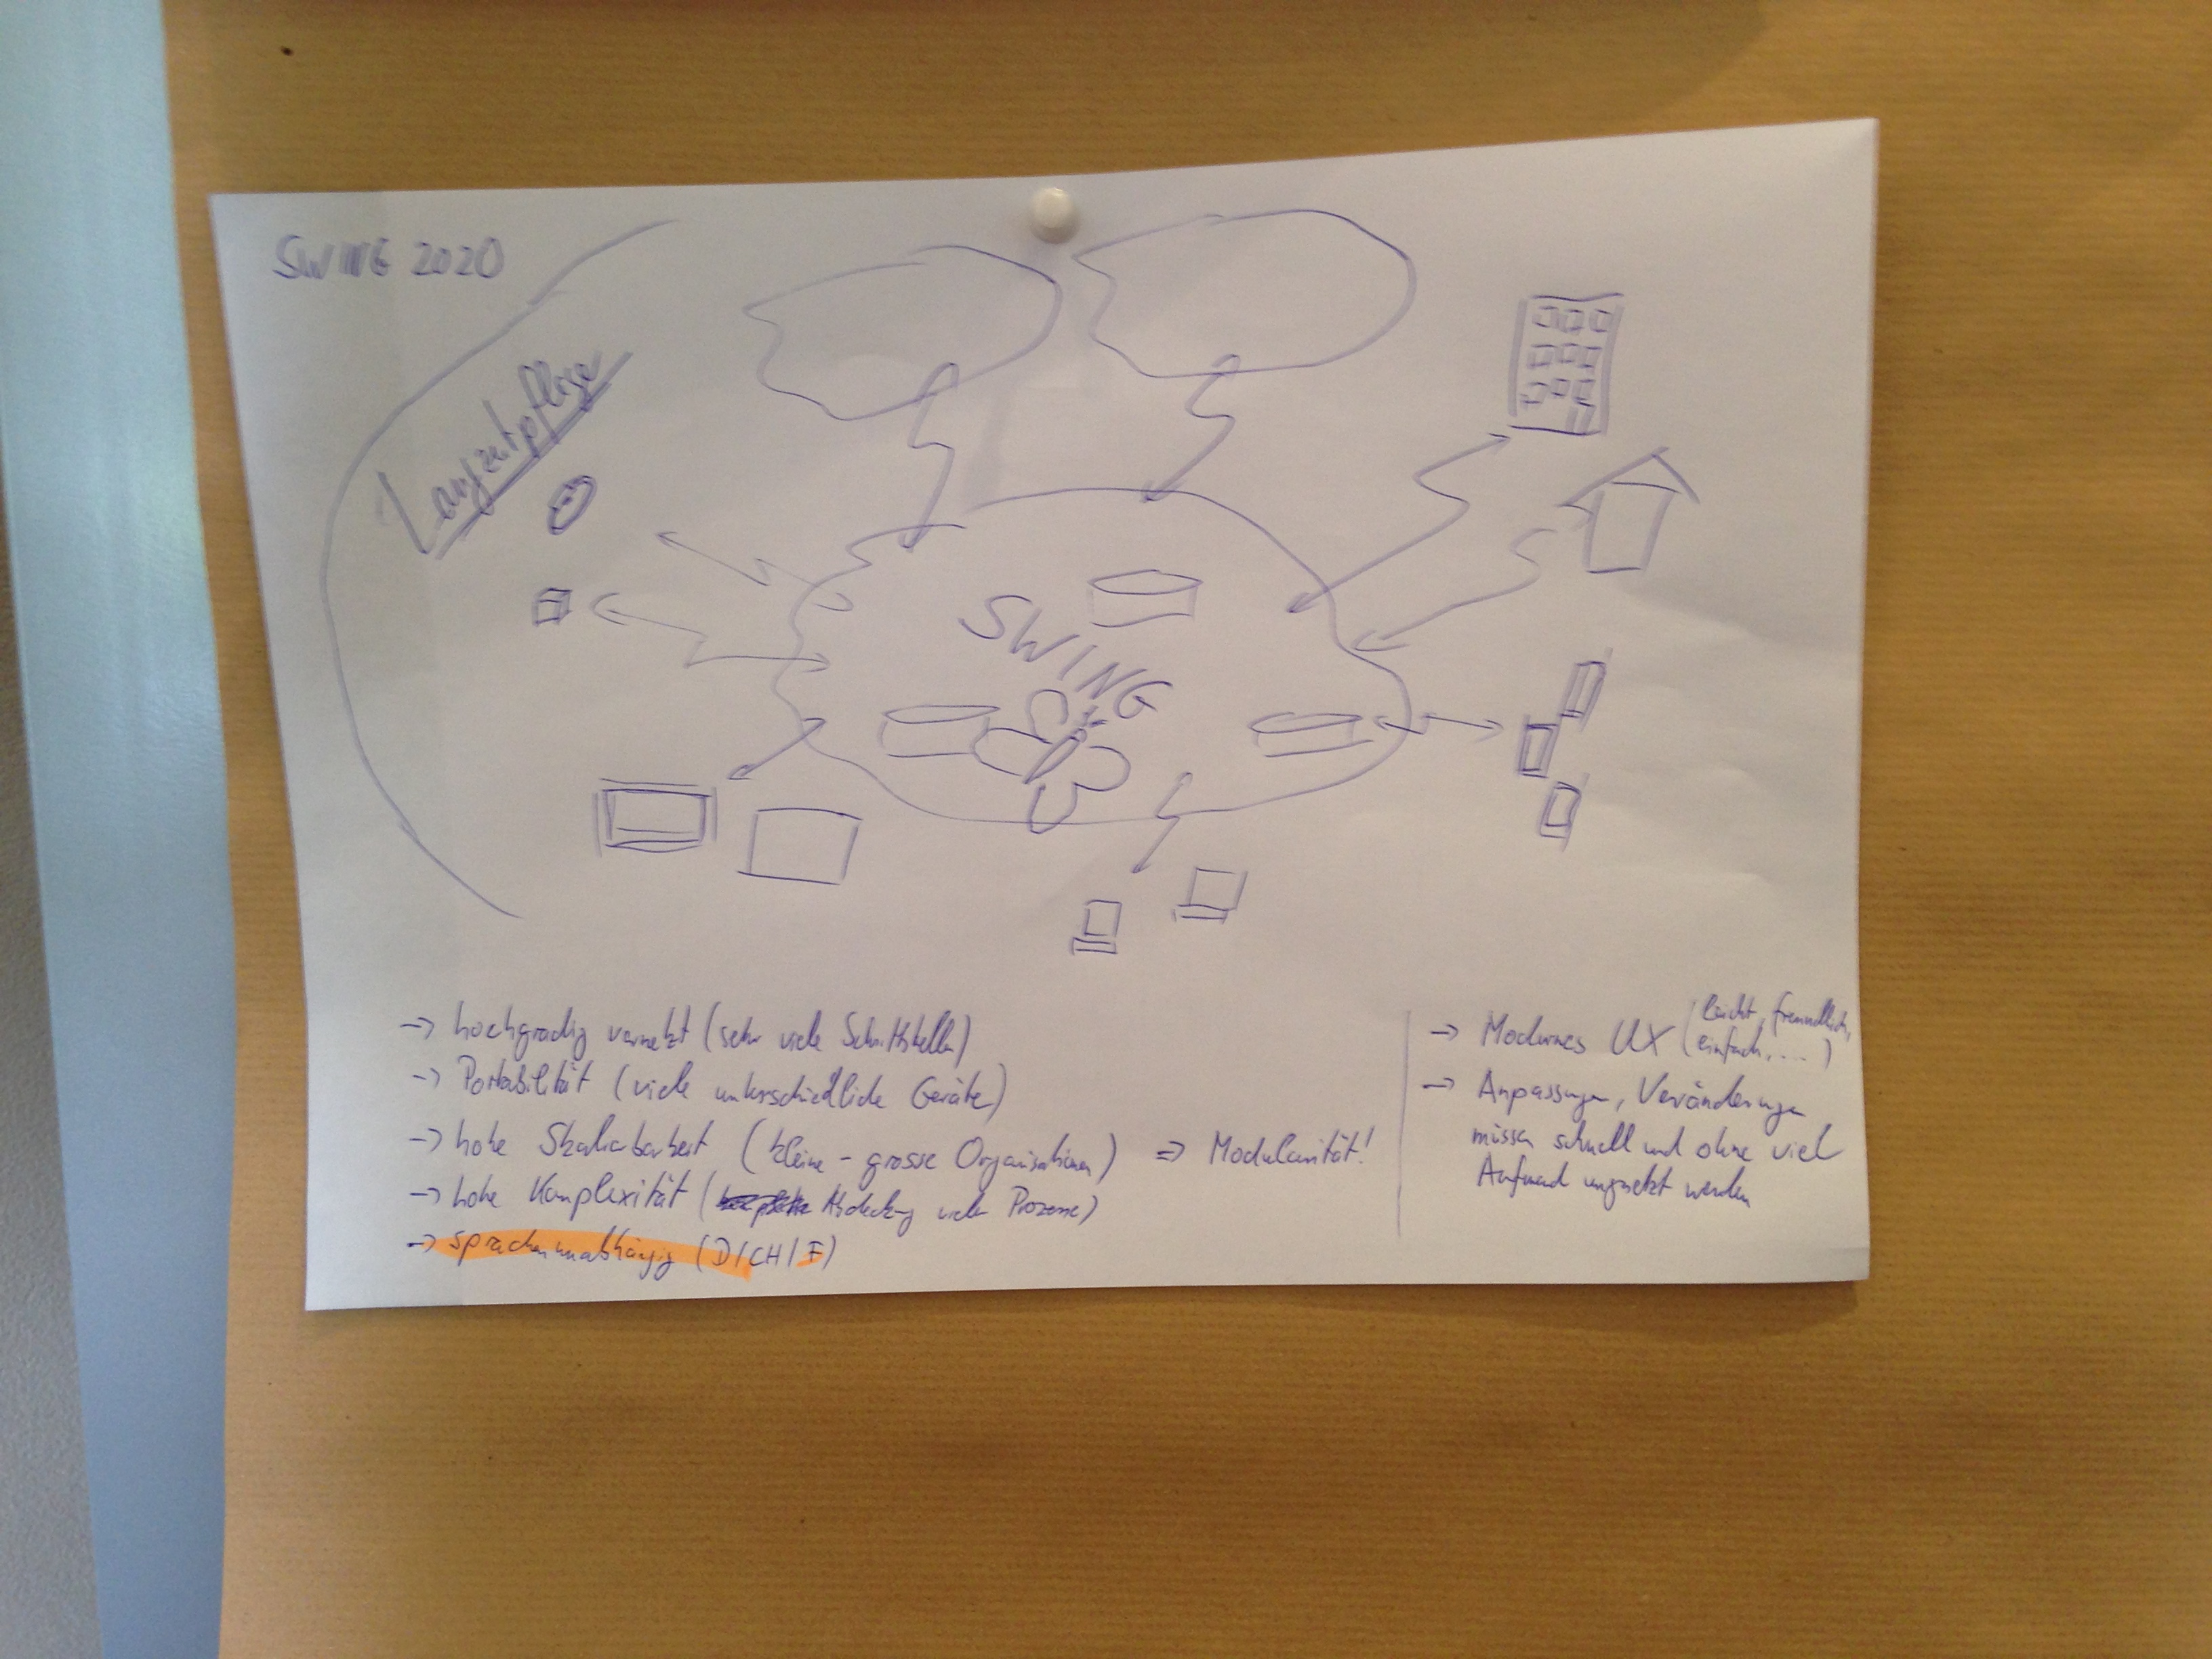 SWING 2020
Langzeitpflege
SWING
-> hochgradig vernetzt (sehr viele Schnittstellen)
-> Portabilität (viele unterschiedliche Geräte)
-> hohe Skalierbarkeit (kleine - grosse Organisationen) => Modularität!
-> hohe Komplexität ( Abdeckung vieler Prozesse)
-> sprachenunabhängig (D/CH/F)
-> Modernes UX (leicht, freundlich,
einfach, ....)
-> Anpassungen, Veränderungen
müssen schnell und ohne viel
Aufwand umgesetzt werden